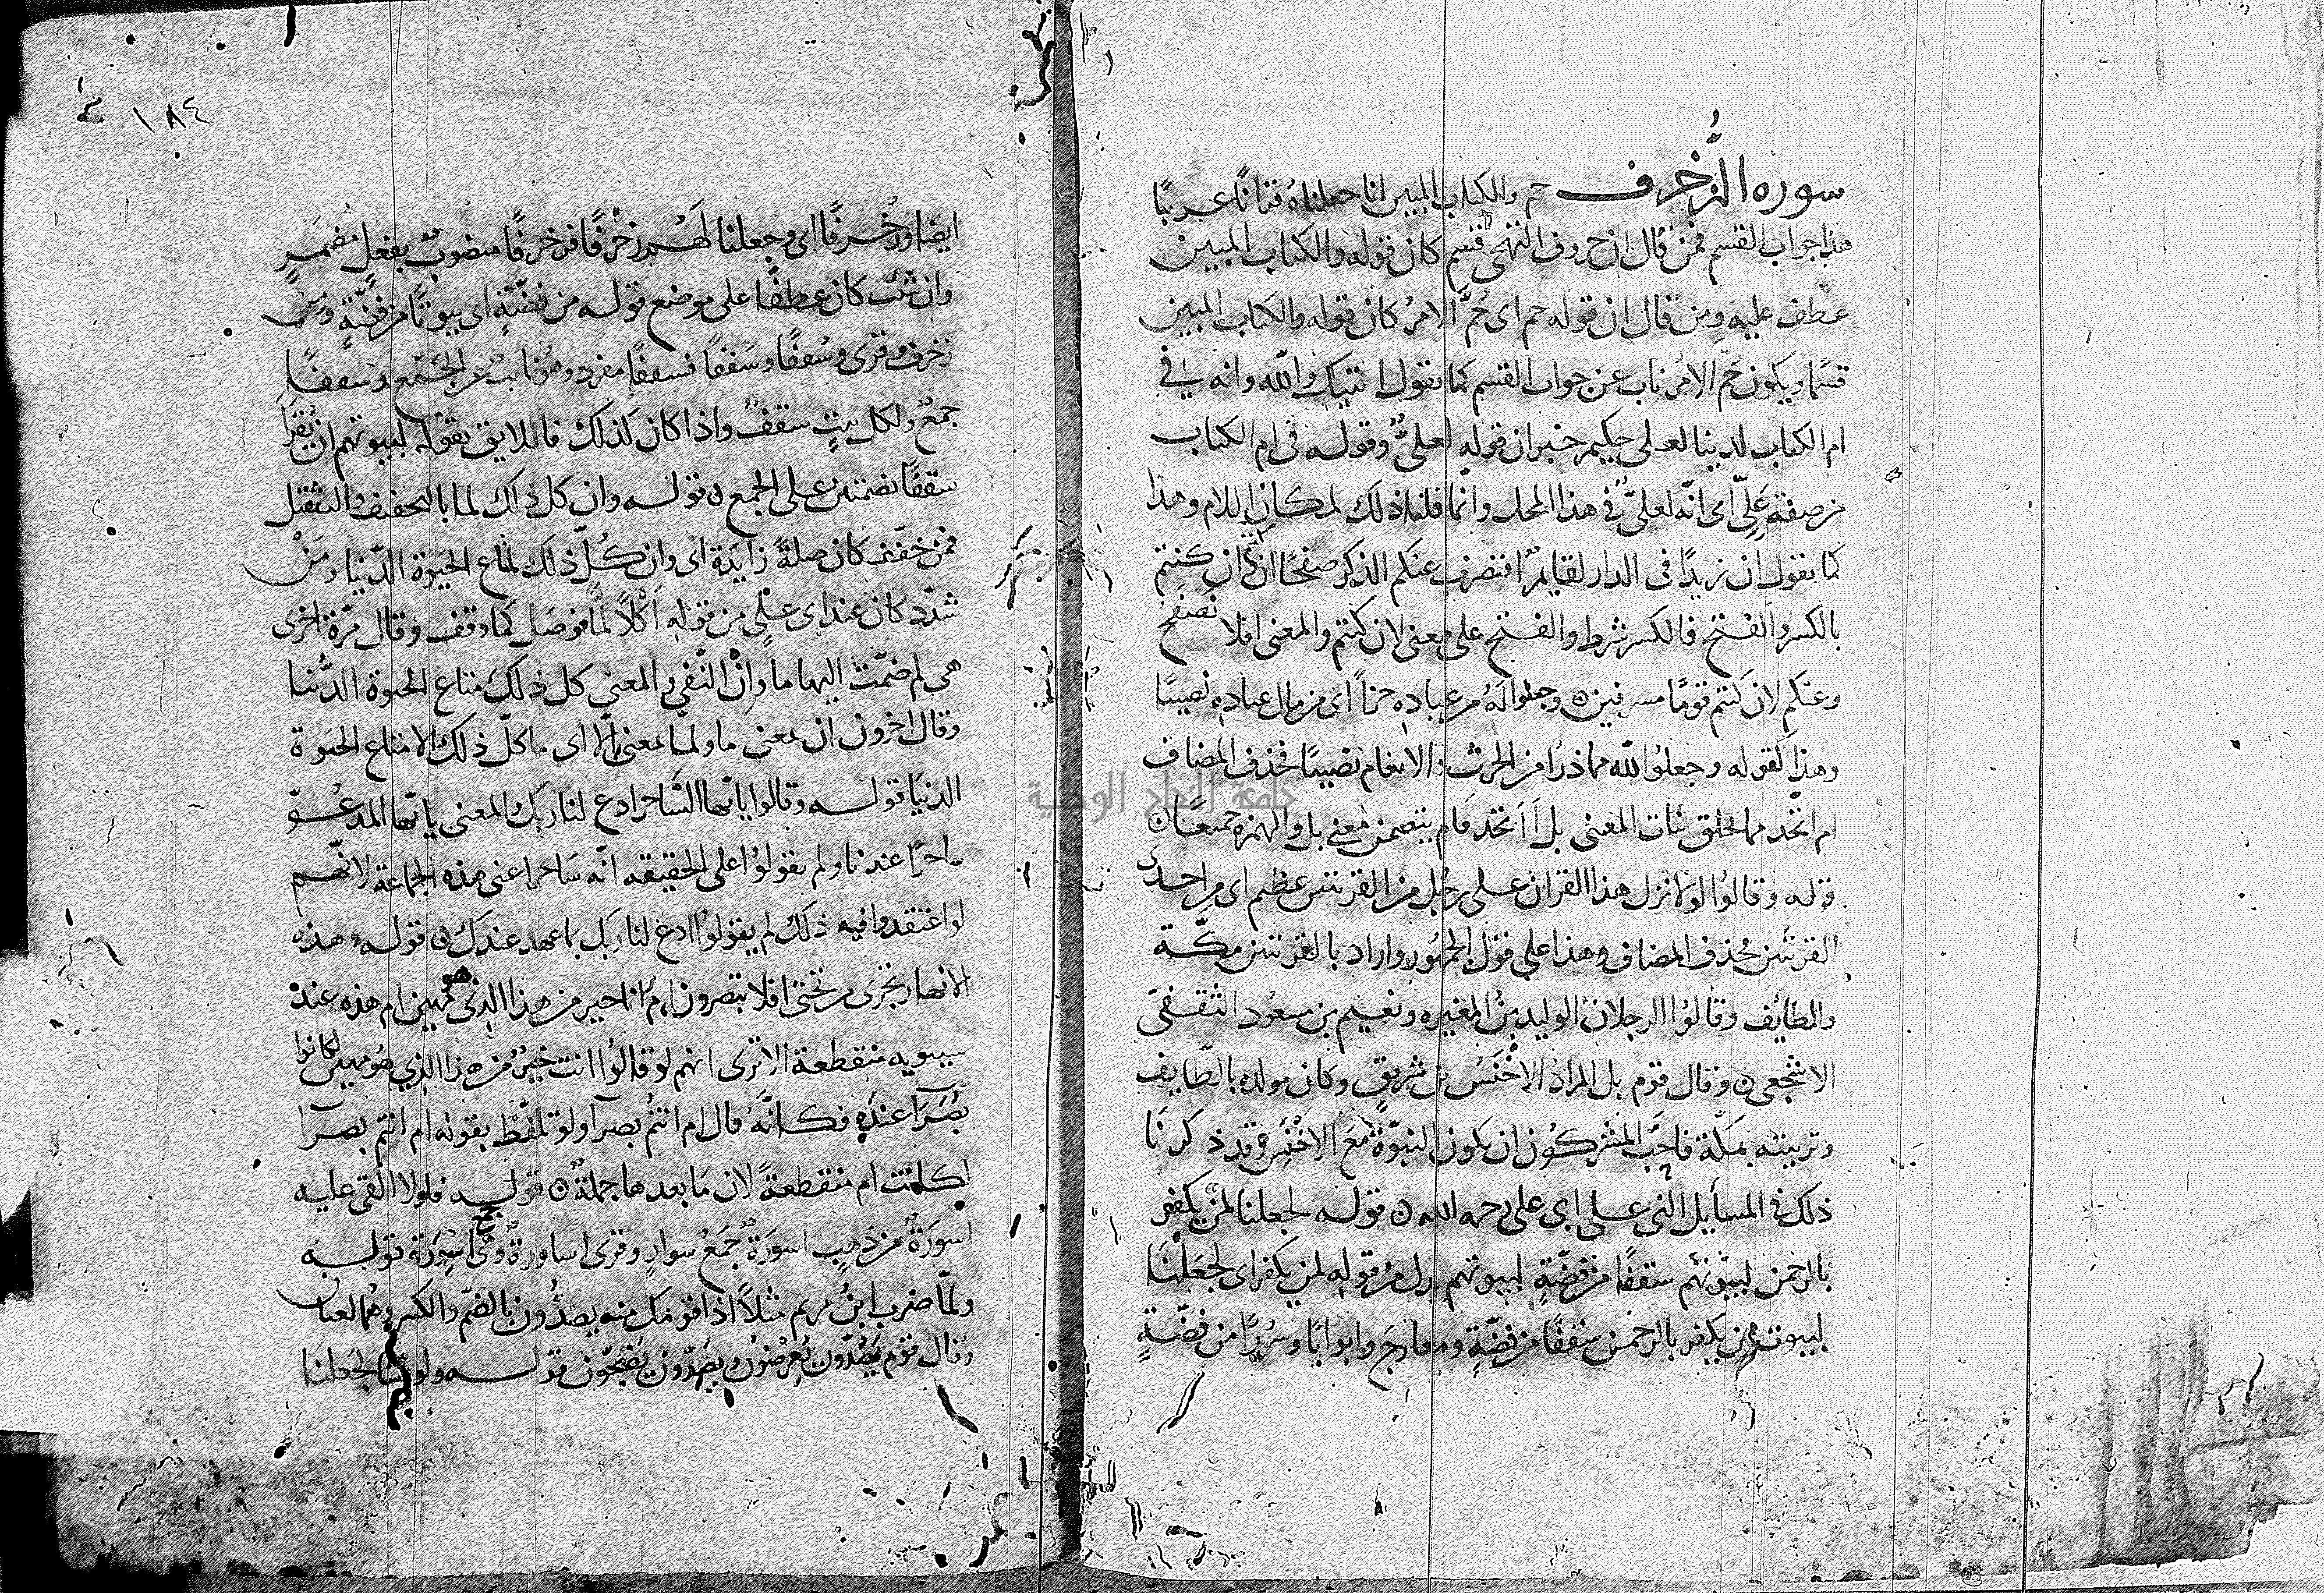 سورة الزُّخرف حم والكتاب المبين انا جعلناهُ قرانًا عربيًا
هذا جواب القسم فمن قال ان حروف التهجي قسم كان قوله والكتاب المبين
عطف عليه ومن قال ان قوله حم اى حُمَّ الامرُ كان قوله والكتاب المبين
قسمًا ويكون حُمّ الامرُ ناب عن جواب القسم كما تقول اتيتك والله وانه في
ام الكتاب لدينا لعلى حكيم خبر ان قوله لعلىٌّ وقوله فى ام الكتاب
من صفة عَلِىّ اى انّه لعلىٌّ في هذا المحل وانّما قلنا ذلك لمكان اللام وهذا
كما تقول ان زيدًا فى الدار لقايمٌ افنضرب عنكم الذكر صفحًا ان كنتم
بالكسر والفتح فالكسر شرط والفتح على معنى لان كنتم والمعنى افلا نصفح
وعنكم لان كنتم قومًا مسرفين ٥ وجعلوا لهُ من عباده جزأً اى من مال عباده نصيبًا
وهذا كقوله وجعلوا لله مما ذرأ من الحرث والانعام نصيبًا فحذف المضاف
ام اتخذ مما يخلق بنات المعنى بل أَاَتخذ فام يتضمن معنى بل والهمزة جميعًا ٥
قوله وقالوا لولا نزل هذا القران على رجُل من القريتين عظيم اى من احدى
القريتين فحذف المضاف وهذا على قول الجمهُور واراد بالقريتين مكّة
والطايف وقالُوا الرجلان الوليد بنُ المغيره ونعيم بن مسعُود الثقفىّ
الاشجعى ٥ وقال قوم بل المراد الاخْنَسُ بن شريق وكان مولده بالطّايف
وتربيته بمكّة فاحَبَّ المشركُون ان يكون النبوّةُ مَعَ الاخْنَس وقد ذكرنَا
ذلك في المسايل التى على ابى على رحمه الله ٥ قوله لجعلنا لمنْ يكفر
بالرحمن لبيُوتهم سقفًا من فضّةٍ لبيوتهم بدل من قوله لمن يكفر اى لجَعَلْنَا
لبيوت من يكفر بالرحمن سقفًا من فضّةٍ ومعارجَ وابوابًا وسُررًا من فضّةٍ
ايضًا وزُخرفًا اى وجعلنا لَهُم زخْرُفًا فزخرفًا منصُوبٌ بفعل مُضمَرٍ
وان شئت كان عطفًا على موضع قوله من فضّةٍ اى بيوتًا من فضّةٍ ومن
زخرف وقرى وسُقفًا وسَقفًا فسقفًا مفرد وهُو نايب عن الجَمْع وسقفًا
جمعٌ ولكل بيتٍ سقفٌ واذا كان كذلك فاللايق بقوله لبيوتهم ان يُقرأ
سقفًا بضمتين على الجمع ٥ قوله وان كل ذلك لما بالتخفيف والتثقيل
فمن خفّف كان صلةً زايدة اى وان كُلّ ذلك لمتاع الحيوة الدّنيا ومَنْ
شدّد كان عند ابى على من قوله اَكْلاً لمًّا فوصَل كما وقف وقال مرّة اخرى
هى لم ضمّت اليها ما وانْ النّفى والمعنى كل ذلك متاع الحيوة الدُّنيا
وقال اخرون ان بمعنى ما ولمّا بمعنى إلّا اى ما كلّ ذلك الا متاع الحيوة
الدنيَا قوله وقالوا يا ايّها السَّاحر ادع لنا ربك والمعنى يا ايّها المدعُوّ
ساحرًا عندنا ولم يقولُوا على الحقيقه انّه سَاحر اعنى هذه الجماعة لانّهم
لو اعتقدوا فيه ذلك لم يقولوا ادع لنا ربك بما عهد عندكَ ٥ قوله وهذه
الانهار تجرى من تحتى افلا تبصرون امْ انا خير من هذا الذى هو مهين ام هذه عند
سيبويه منقطعة الا ترى انهم لو قالوا انت خيرٌ من هذا الذي هُو مهين لكانوا
بُصَرَآ عنده فكانّهُ قال ام انتُم بصرآ ولو تلفّظ بقوله ام انتم بصرآ
لكانت ام منقطعةً لان مَا بعدها جملةٌ ٥ قوله فلولا القى عليه
اسورَةٌ من ذهبٍ اسورَةٌ جَمعُ سوارٍ وقرى اساورةٌ وهى جمع اسْورَة قوله
ولمّا ضرب ابنُ مريم مثلاً اذا قومك منه يصدُّون بالضمّ والكسر وهُما لغتان
وقال قوم يَصُدّون يُعرضُون ويَصِدّون يَضِجّون قوله ولو نشا لجعَلنَا
١٨٤
جامعة النجاح الوطنية